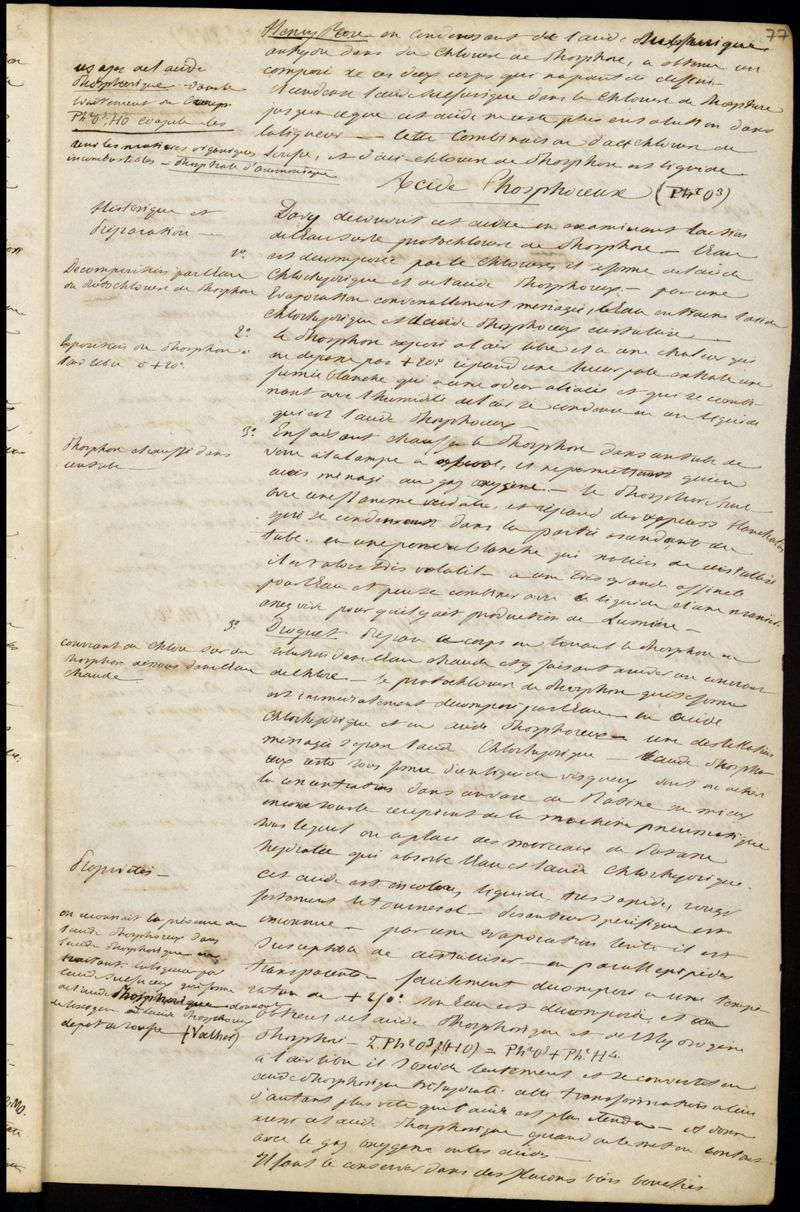 77
Henry Rose en condensant de l'acide sulfurique
anhydre dans du chlorure de Phosphore, a obtenu un
composé de ces deux corps qui
l'acide sulfurique dans le chlorure de Phosphore
jusqu'à ce que cet acide ne soit plus en solution dans
la liqueur — Cette combinaison d'oxichlorure de
soufre, et d'oxichlorure de Phosphore est liquide
usages de l'acide
Phosphorique — dans le
traitement du
Ph²O⁵, HO
rend les matières organiques
incombustibles — Phosphate d'ammoniaque
Acide Phosphoreux (Ph²O³)
Historique et
Préparation —
Davy découvrit cet acide en examinant l'action
de l'eau sur le protochlorure de Phosphore — l'eau
est décomposée par le chlorure, il se forme de l'acide
Chlorhydrique et de l'acide Phosphoreux — par une
Evaporation convenablement ménagée, l'eau entraine l'acide
Chlorhydrique et l'acide Phosphoreux cristallise —
1°.
Decomposition par l'eau
du Protochlorure de Phosphore
2°
Exposition du Phosphore à
l'air libre à +20°
le Phosphore exposé à l'air libre et à une chaleur qui
ne depasse pas +20° répand une lueur pale exhale une
fumée blanche qui a une odeur alliacée et qui se combi-
nant avec l'humidité de l'air se condense en un liquide
qui est l'acide Phosphoreux —
3°
Phosphore chauffé dans
un tube —
En faisant chauffer le Phosphore dans un tube de
verre à la lampe à alcool, et ne permettant qu'un
accès ménagé au gaz oxygène — le Phosphore brule
avec une flamme verdâtre, et répand des vapeurs blanches
qui se condensent dans la partie ascendante du
tube, en une poudre blanche qui
il est alors très volatil — a une très grande affinité
pour l'eau et peut se combiner avec ce liquide d'une manière
assez vive pour qu'il y ait production de lumière —
3°
courrant de Chlore sur du
Phosphore dissous dans l'eau
chaude —
Droguet prépare ce corps en tenant le Phosphore en
solution dans l'eau chaude et y faisant arriver un courrant
de chlore — le protochlorure de Phosphore qui se forme
est immédiatement décomposé par l'eau — en acide
Chlorhydrique et en acide Phosphoreux — une destillation
ménagée separe l'acide Chlorhydrique — l'acide Phospho-
reux reste sous forme d'un liquide visqueux dont on achève
la concentration dans un vase de Platine ou mieux
encore sous le récipient de la machine pneumatique
sous lequel on a placé des morceaux de Potasse
hydratée qui absorbe l'eau et l'acide Chlorhydrique.
Propriétés —
cet acide est incolore, liquide, très sapide, rougit
fortement le tournesol — sa densité spécifique est
inconnue — par une évaporation lente il est
susceptible de cristalliser en parallelipipèdes
transparents — facilement décomposé à une tempé-
rature de son eau est décomposée, et on
obtient de l'acide Phosphorique et de l'hydrogène
Phosphoré — 2.Ph²O³,(HO) = Ph²O⁵ + Ph.H⁴
à l'air libre il s'oxide lentement et se convertit en
acide Phosphorique trihydraté. cette transformation a lieu
d'autant plus vite que l'acide est plus étendu — et donne
aussi cet acide Phosphorique quand on le met en contact
avec le gaz oxygène ou les acides —
Il faut le conserver dans des flacons bien bouchés
on reconnait la présence de
l'acide Phosphoreux dans
l'acide Phosphorique en
traitant la liqueur par
l'acide sulfureux qui forme
de l'acide Phosphorique donnant
depot de soufre — (Vohler)